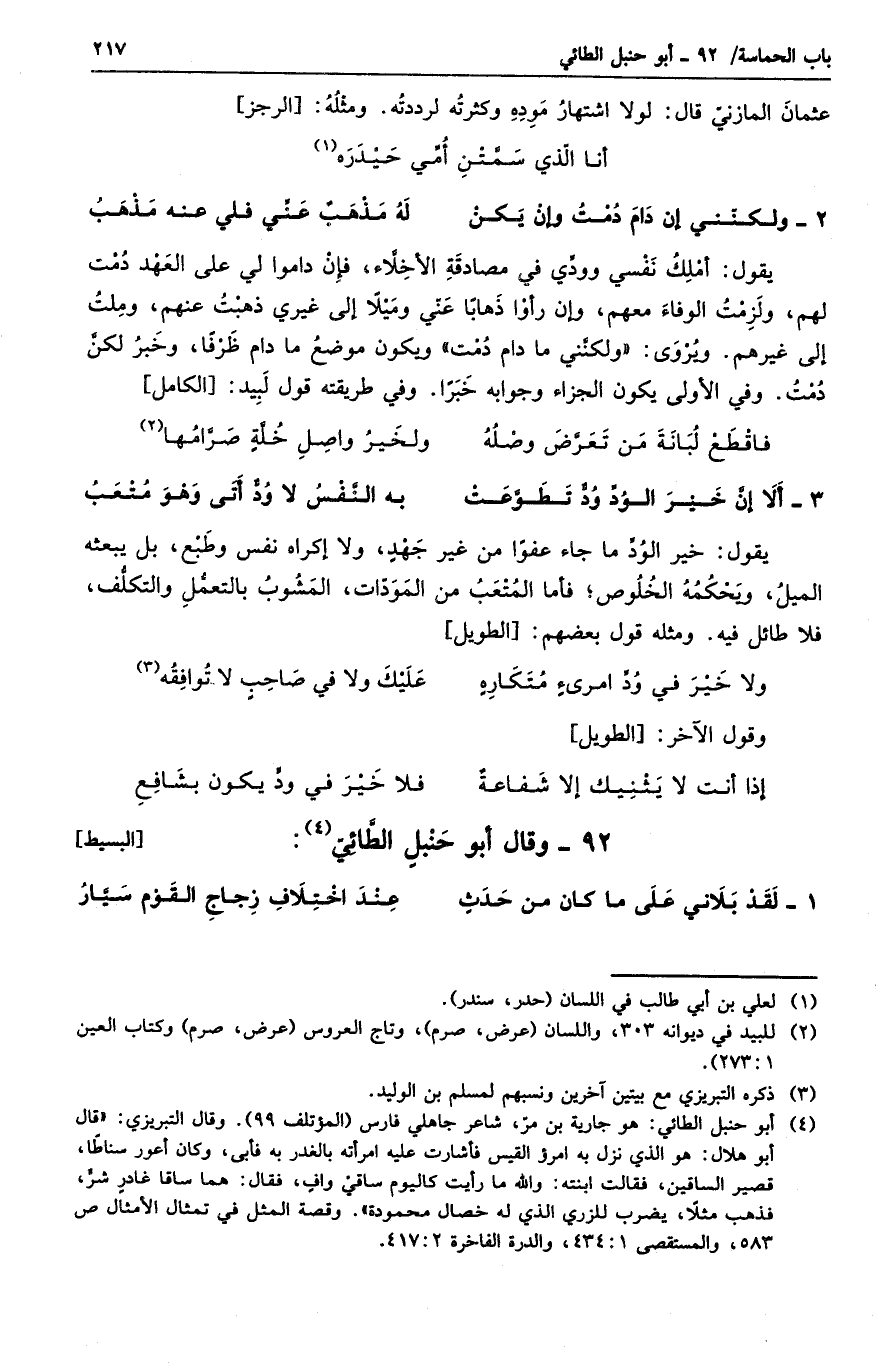 باب الحماسة/ ٩٢ ـ أبو حنبل الطائي ٢١٧
عثمانَ المازنيّ قال: لولا اشتهارُ مَوِدِهِ وكثرتُه لرددتُه. ومثلُهُ: [الرجز]
أنا الّذي سَمَّتْنِ أُمِّي حَيْدَرَه(١)
٢ ـ ولكنّني إن دَامَ دُمْتُ وإنْ يَكنْ لَهُ مَذْهَبٌ عَنِّي فلي عنه مَذْهَبُ
يقول: أمْلِكُ نَفْسي وودِّي في مصادقَةِ الأخِلَّاء، فإنْ داموا لي على العَهْد دُمْت
لهم، ولَزِمْتُ الوفاءَ معهم، وإن رأوْا ذَهابًا عَنّي ومَيْلًا إلى غيري ذهبْتُ عنهم، ومِلتُ
إلى غيرهم. ويُرْوَى: «ولكنَّني ما دام دُمْت» ويكون موضعُ ما دام ظَرْفًا، وخَبرُ لكنَّ
دُمْتُ. وفي الأولى يكون الجزاء وجوابه خَبَرًا. وفي طريقته قول لَبِيد: [الكامل]
فاقْطَعْ لُبَانَةَ مَن تَعَرَّضَ وصْلُهُ ولخَيرُ واصِلِ خُلَّةٍ صَرَّامُها(٢)
٣ ـ أَلَا إنَّ خَيْرَ الودِّ وُدٌّ تَطَوَّعَتْ به النَّفْسُ لا وُدٌّ أَتَى وَهْوَ مُتْعَبُ
يقول: خير الوُدِّ ما جاء عفوًا من غير جَهْدٍ، ولا إكراه نفس وطَبْع، بل يبعثه
الميلُ، ويَحْكُمُهُ الخُلُوص؛ فأما المُتْعَبُ من المَوَدّات، المَشُوبُ بالتعمُّلِ والتكلُّف،
فلا طائل فيه. ومثله قول بعضهم: [الطويل]
ولا خَيْرَ في وُدِّ امرىءٍ مُتَكَارِهٍ عَلَيْكَ ولا في صَاحِبٍ لا تُوافِقُه(٣)
وقول الآخر: [الطويل]
إذا أنت لا يَثْنِيك إلا شَفاعةٌ فلا خَيْرَ في ودٍّ يكون بشَافِعِ
٩٢ ـ وقال أبو حَنْبلٍ الطَّائِيّ(٤): [البسيط]
١ ـ لَقَدْ بَلَاني عَلَى ما كان من حَدَثٍ عِنْدَ اخْتِلَافِ زِجاجِ القَوْم سَيَّارُ
(١) لعلي بن أبي طالب في اللسان (حدر، سندر).
(٢) للبيد في ديوانه ٣٠٣، واللسان (عرض، صرم)، وتاج العروس (عرض، صرم) وكتاب العين
١: ٢٧٣).
(٣) ذكره التبريزي مع بيتين آخرين ونسبهم لمسلم بن الوليد.
(٤) أبو حنبل الطائي: هو جارية بن مرّ، شاعر جاهلي فارس (المؤتلف ٩٩). وقال التبريزي: «قال
أبو هلال: هو الذي نزل به امرؤ القيس فأشارت عليه امرأته بالغدر به فأبى، وكان أعور سناطًا،
قصير الساقين، فقالت ابنته: والله ما رأيت كاليوم ساقيْ وافٍ، فقال: هما ساقا غادرٍ شرٌّ،
فذهب مثلًا، يضرب للزري الذي له خصال محمودة». وقصة المثل في تمثال الأمثال ص
٥٨٣، والمستقصى ١: ٤٣٤، والدرة الفاخرة ٢: ٤١٧.